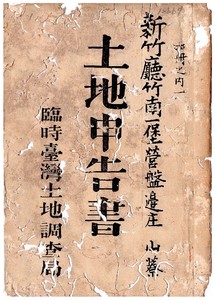 冊之内一
新竹廳竹南一堡營盤邊庄 山藔
土地申告書
臨時臺灣土地調查局